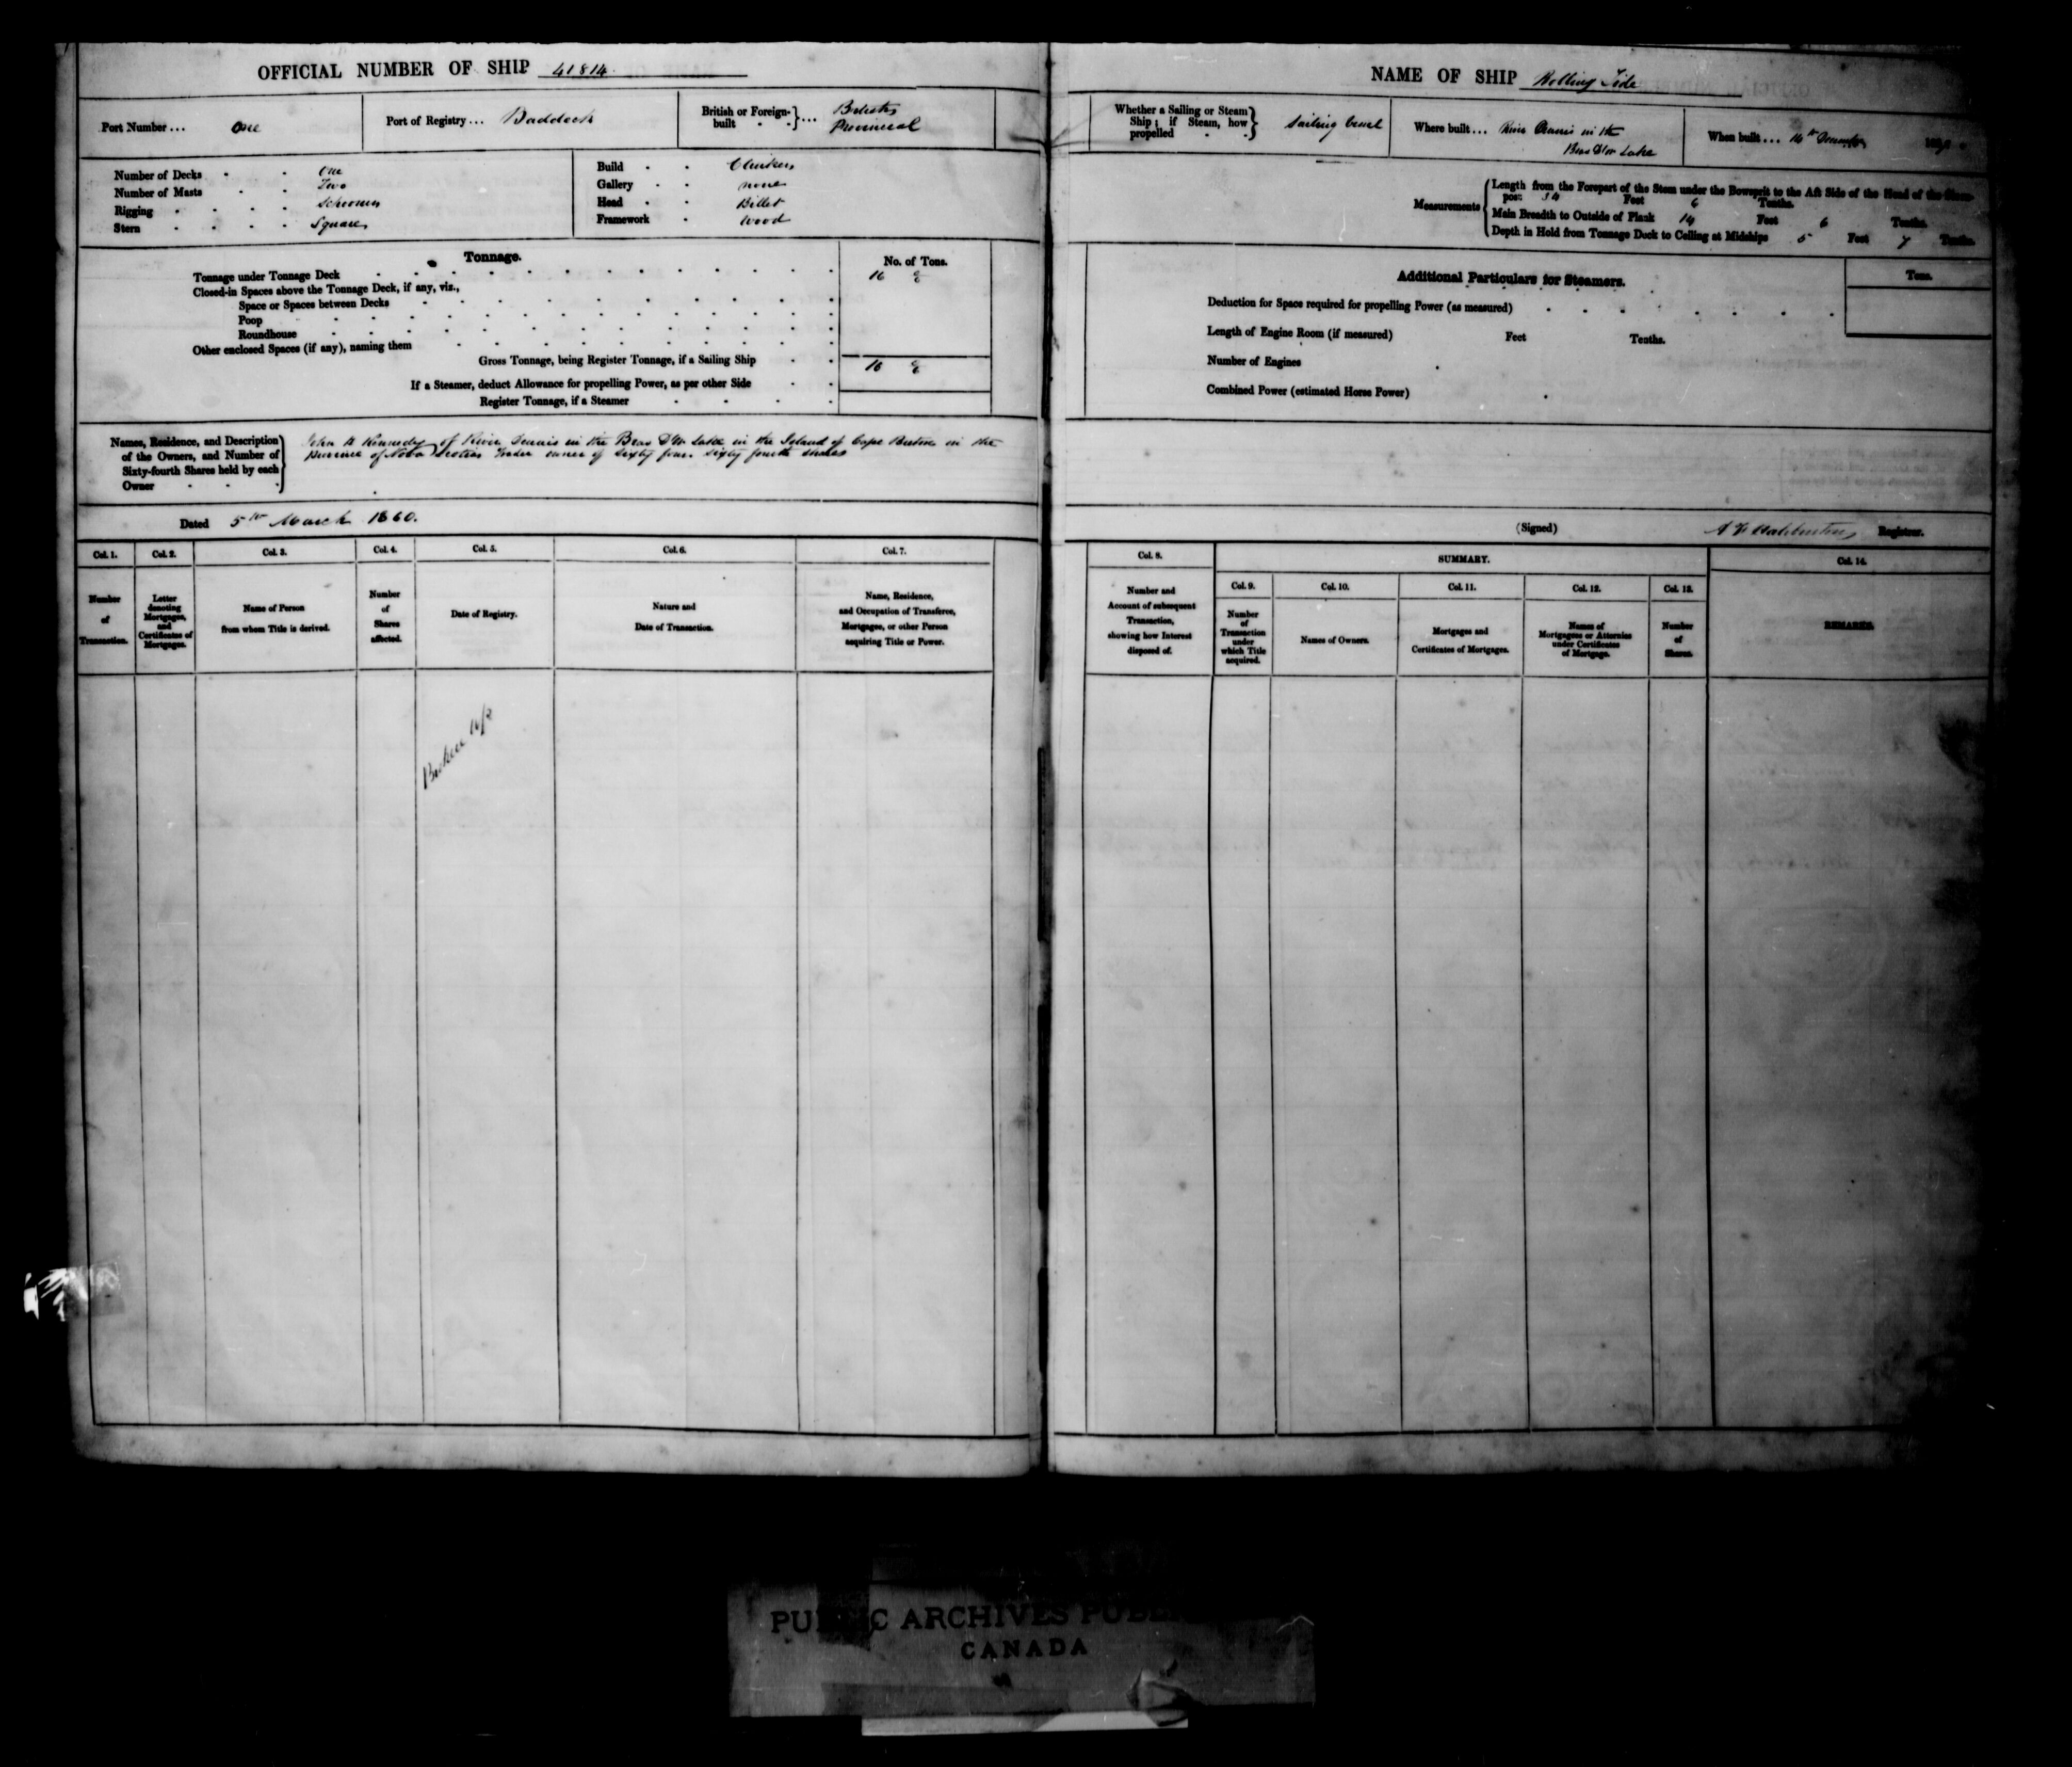 OFFICIAL NUMBER OF SHIP 41814
Port Number ... One
Port of Registry ... Baddeck
British or Foreign-built ... British Provincial
Number of Decks One
Number of Masts Two
Rigging Schooner
Stern Square
Build Clinker
Gallery none
Head Billet
Framework Wood
Tonnage. No. of Tons.
Tonnage under Tonnage Deck 16
Closed-in Spaces above the Tonnage Deck, if any, viz.,
Space or Spaces between Decks
Poop
Roundhouse
Other enclosed Spaces (if any), naming them
Gross Tonnage, being Register Tonnage, if a Sailing Ship 16
If a Steamer, deduct Allowance for propelling Power, as per other Side
Register Tonnage, if a Steamer
Names, Residence, and Description
of the Owners, and Number of
Sixty-fourth Shares held by each
Owner
John Kennedy of River Dennis in the Bras D'or Lake in the Island of Cape Breton in the
Province of Nova Scotia Trader owner of Sixty four Sixty fourth shares
Dated 5th March 1860.
Col. 1. Col. 2. Col. 3. Col. 4. Col. 5. Col. 6. Col. 7.
Number of Transaction.
Letter denoting Mortgages, and Certificates of Mortgages.
Name of Person from whom Title is derived.
Number of Shares affected.
Date of Registry.
Nature and Date of Transaction.
Name, Residence, and Occupation of Transferee, Mortgagee, or other Person acquiring Title or Power.
Broken Up
NAME OF SHIP Rolling Tide
Whether a Sailing or Steam
Ship; if Steam, how
propelled
Sailing vessel
Where built ... River Dennis in the
Bras D'or Lake
When built ... 14th December
Measurements
Length from the Forepart of the Stem under the Bowsprit to the Aft Side of the Head of the Stern-
post 34 Feet 6 Tenths.
Main Breadth to Outside of Plank 14 Feet 6 Tenths.
Depth in Hold from Tonnage Deck to Ceiling at Midships 5 Feet 7 Tenths.
Additional Particulars for Steamers. Tons.
Deduction for Space required for propelling Power (as measured)
Length of Engine Room (if measured) Feet Tenths.
Number of Engines
Combined Power (estimated Horse Power)
(Signed) Haliburton Registrar.
Col. 8. SUMMARY. Col. 14.
Col. 9. Col. 10. Col. 11. Col. 12. Col. 13.
Number and Account of subsequent Transaction, showing how Interest disposed of.
Number of Transaction under which Title acquired.
Names of Owners.
Mortgages and Certificates of Mortgages.
Names of Mortgagees or Attornies under Certificates of Mortgage.
Number of Shares.
REMARKS.
ARCHIVES
CANADA